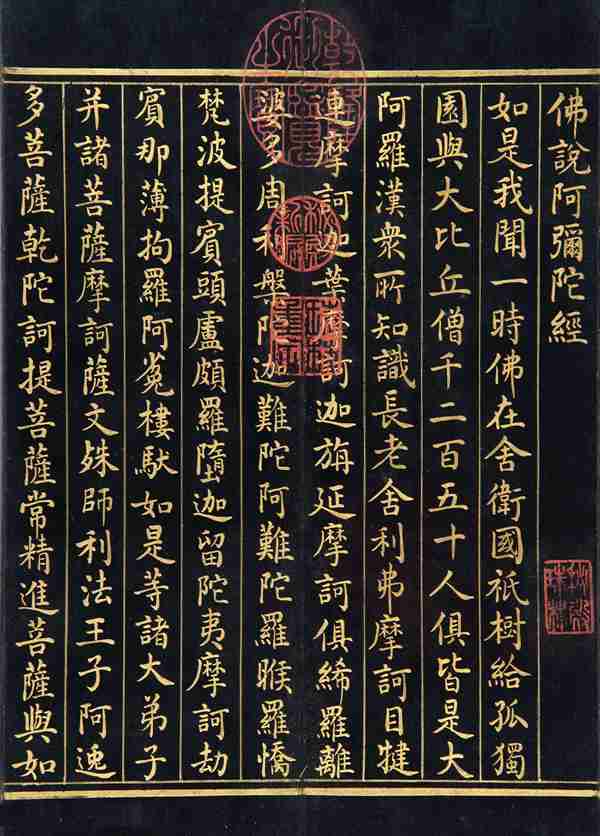 佛說阿彌陀經
如是我聞一時佛在舍衛國祇樹給孤獨
園與大比丘僧千二百五十人俱皆是大
阿羅漢衆所知識長老舍利弗摩訶目犍
連摩訶迦葉摩訶迦旃延摩訶俱絺羅離
婆多周利槃陁迦難陀阿難陀羅睺羅憍
梵波提賓頭盧頗羅墮迦留陀夷摩訶劫
賓那薄拘羅阿㝹樓馱如是等諸大弟子
并諸菩薩摩訶薩文殊師利法王子阿逸
多菩薩乾陀訶提菩薩常精進菩薩與如